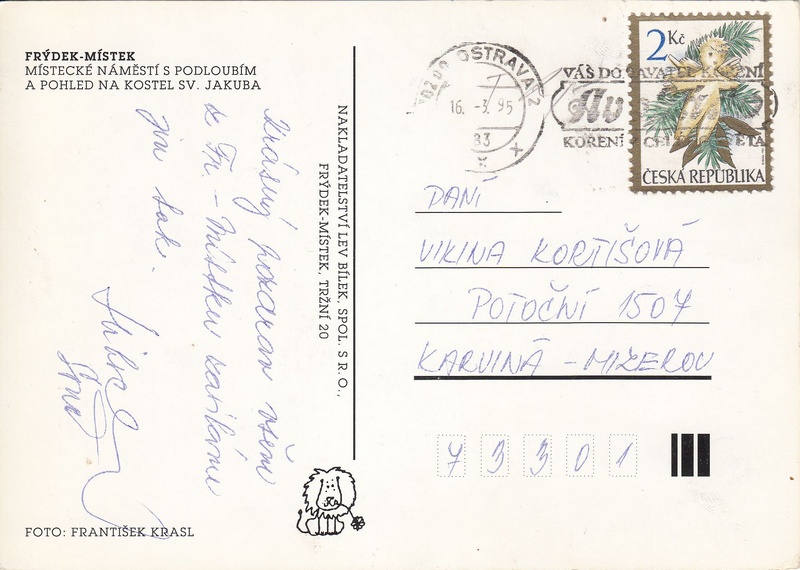 FRÝDEK-MÍSTEK
MÍSTECKÉ NÁMĚSTÍ S PODLOUBÍM
A POHLED NA KOSTEL SV. JAKUBA
Krásný pozdrav všem
z Fr. - Místku
jin tak.
NAKLADATELSTVÍ LEV BÍLEK, SPOL. S R. O.,
FRÝDEK-MÍSTEK, TRŽNÍ 20
FOTO: FRANTIŠEK KRASL
OSTRAVA 2
16. -3. 95
83
VÁŠ DODAVATEL KOŘENÍ
KOŘENÍ
2 Kč
ČESKÁ REPUBLIKA
PANÍ
VIKINA KORTIŠOVÁ
POTOČNÍ 1507
KARVINÁ - MIZEROV
73301